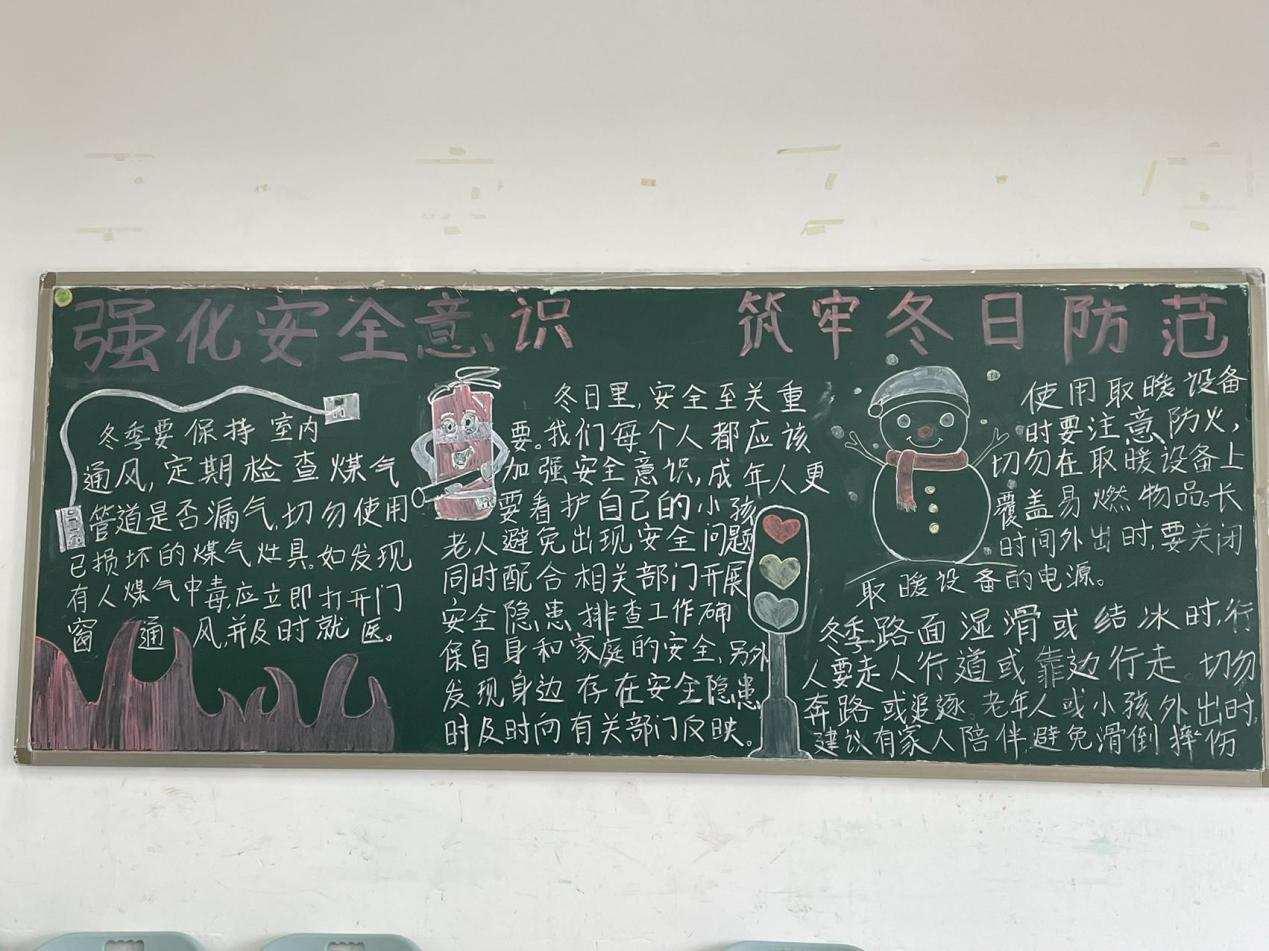 强化安全意识 筑牢冬日防范
冬季要保持室内
通风,定期检查煤气
管道是否漏气,切勿使用
已损坏的煤气灶具。如发现
有人煤气中毒,应立即打开门
窗通风,并及时就医。
冬日里,安全至关重
要。我们每个人都应该
加强安全意识,成年人更
要看护自己的小孩
老人避免出现安全问题
同时配合相关部门开展
安全隐患排查工作确
保自身和家庭的安全,另外
发现身边存在安全隐患
时及时向有关部门反映。
使用取暖设备
时要注意防火,
切勿在取暖设备上
覆盖易燃物品。长
时间外出时,要关闭
取暖设备的电源。
冬季路面湿滑或结冰时,行
人要走人行道或靠边行走。切勿
奔路或追逐。老年人或小孩外出时,
建议有家人陪伴,避免滑倒摔伤